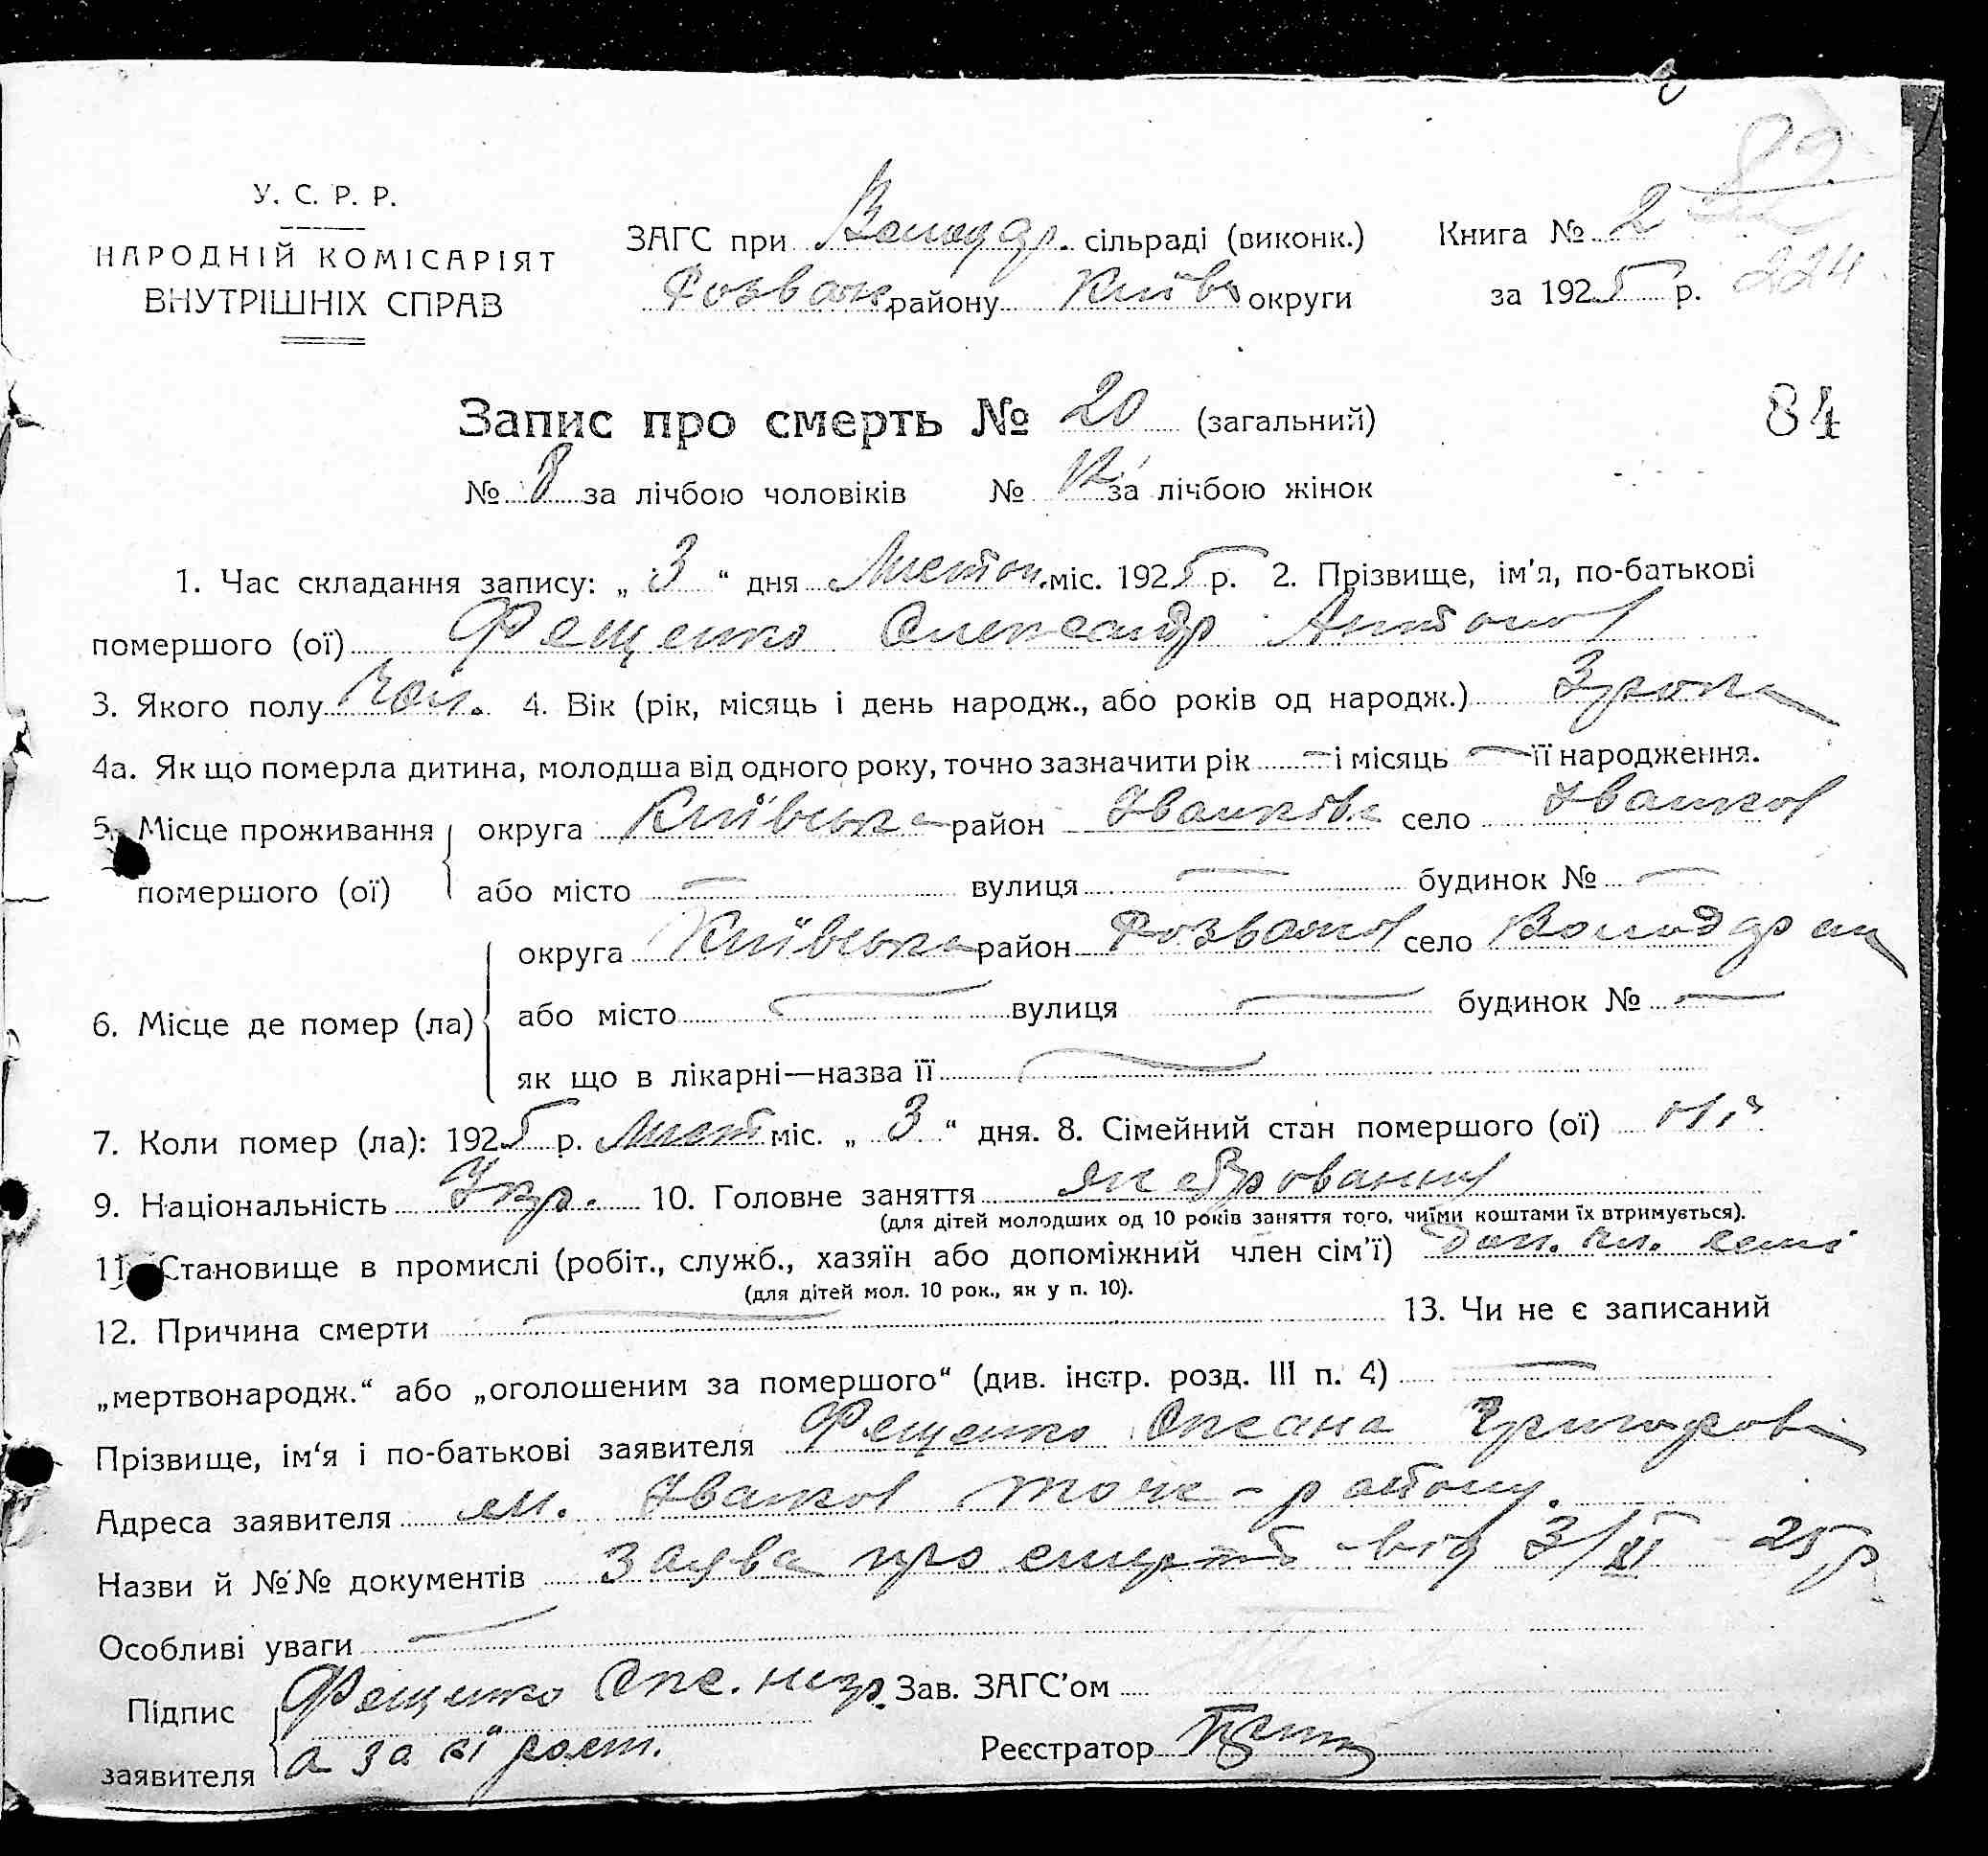 82
У. С. Р. Р.
НАРОДНІЙ КОМІСАРІЯТ
ВНУТРІШНІХ СПРАВ
ЗАГС при Володар. сільраді (виконк.)
Розваж. району Київс округи
Книга № 2
за 1925 р.
224
Запис про смерть № 20 (загальний)
84
№ 8 за лічбою чоловіків № 12 за лічбою жінок
1. Час складання запису: „ 3 “ дня Листоп. міс. 1925 р. 2. Прізвище, ім’я, по-батькові
помершого (ої) Фещенко Олександр Антонов
3. Якого полу Чол. 4. Вік (рік, місяць і день народж., або років од народж.) 3 рока
4а. Як що померла дитина, молодша від одного року, точно зазначити рік — і місяць — її народження.
5. Місце проживання помершого (ої)
округа Київська район Іванків. село Іванков
або місто — вулиця — будинок № —
6. Місце де помер (ла)
округа Київська район Розважов село Володарка
або місто — вулиця — будинок № —
як що в лікарні—назва її —
7. Коли помер (ла): 1925 р. Лист міс. „ 3 “ дня. 8. Сімейний стан помершого (ої)
9. Національність Укр. 10. Головне заняття
(для дітей молодших од 10 років заняття того, чиїми коштами їх втримується).
11. Становище в промислі (робіт., служб., хазяїн або допоміжний член сім’ї) доп. чл. семі
(для дітей мол. 10 рок., як у п. 10).
12. Причина смерти — 13. Чи не є записаний
„мертвонародж.“ або „оголошеним за помершого“ (див. інстр. розд. III п. 4) —
Прізвище, ім‘я і по-батькові заявителя Фещенко Оксана Григорова
Адреса заявителя м. Іванков тож-району.
Назви й №№ документів Заява про смерть від 3/XI 25 р
Особливі уваги —
Підпис заявителя
Фещенко Окс. негр.
а за її росп.
Зав. ЗАГС’ом
Реєстратор